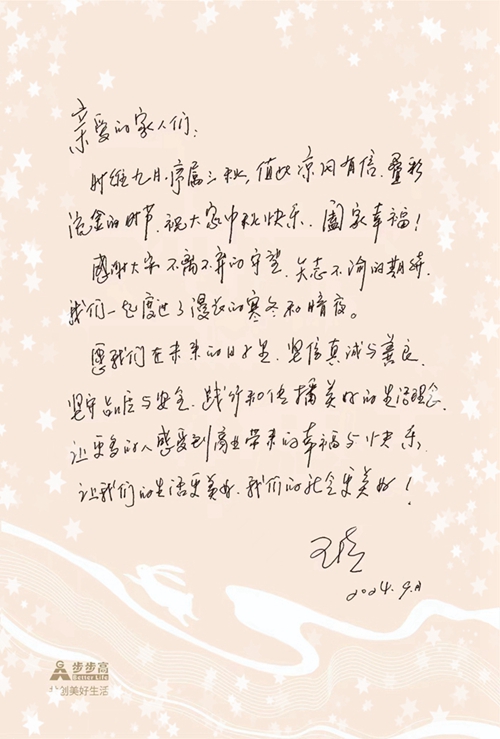 亲爱的家人们：
时维九月，序属三秋，值此凉风有信、叠彩
流金的时节，祝大家中秋快乐，阖家幸福！
感谢大家不离不弃的守望、矢志不渝的期待，
我们一起度过了漫长的寒冬和暗夜。
愿我们在未来的日子里，坚信真诚与善良，
坚守品质与安全，践行和传播美好的生活理念，
让更多的人感受到商业带来的幸福与快乐，
让我们的生活更美好，我们的社会更美好！
2024.9月
步步高
Better Life
共创美好生活